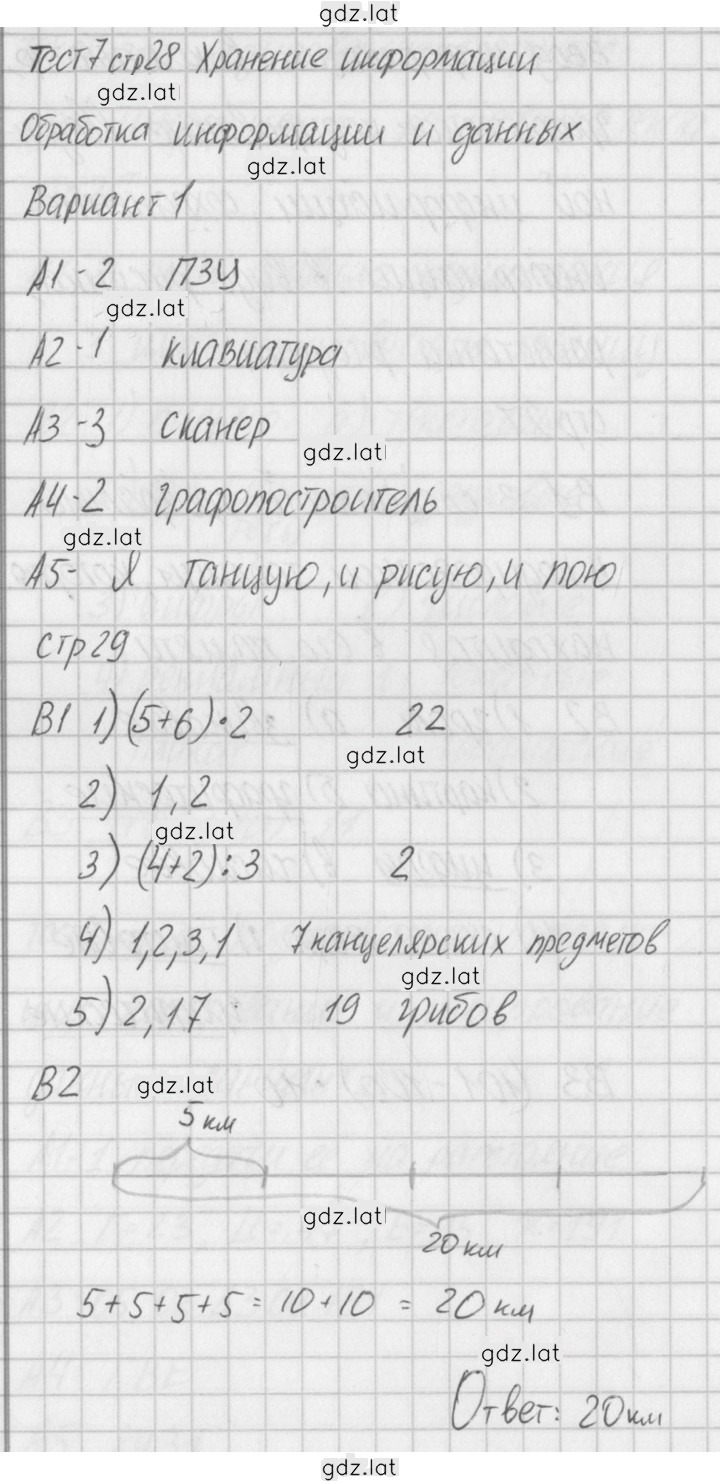 gdz.lat
Тест 7 стр 28 Хранение информации
gdz.lat
Обработка информации и данных
gdz.lat
Вариант 1
А1-2 ПЗУ
gdz.lat
А2-1 клавиатура
А3-3 сканер
gdz.lat
А4-2 графопостроитель
gdz.lat
А5- Я танцую, и рисую, и пою
стр 29
В1 1) (5+6)·2 22
gdz.lat
2) 1, 2
gdz.lat
3) (4+2):3 2
4) 1,2,3,1 7 канцелярских предметов
gdz.lat
5) 2,17 : 19 грибов
В2 gdz.lat
5 км
gdz.lat
20 км
5+5+5+5 = 10+10 = 20 км
gdz.lat
Ответ: 20 км
gdz.lat